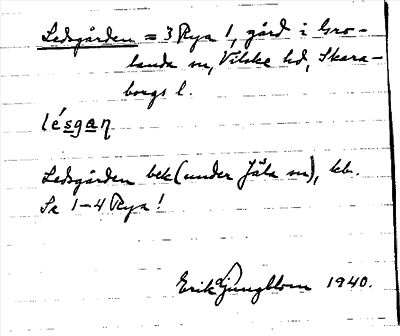 Ledsgården = 3 Rya 1, gård i Gro-
landa sn, Vilske hd, Skara-
borgs l.
lésgaꞑ
Ledsgården bek (under Jäla sn), kb.
Se 1-4 Rya!
Erik Ljungblom 1940.